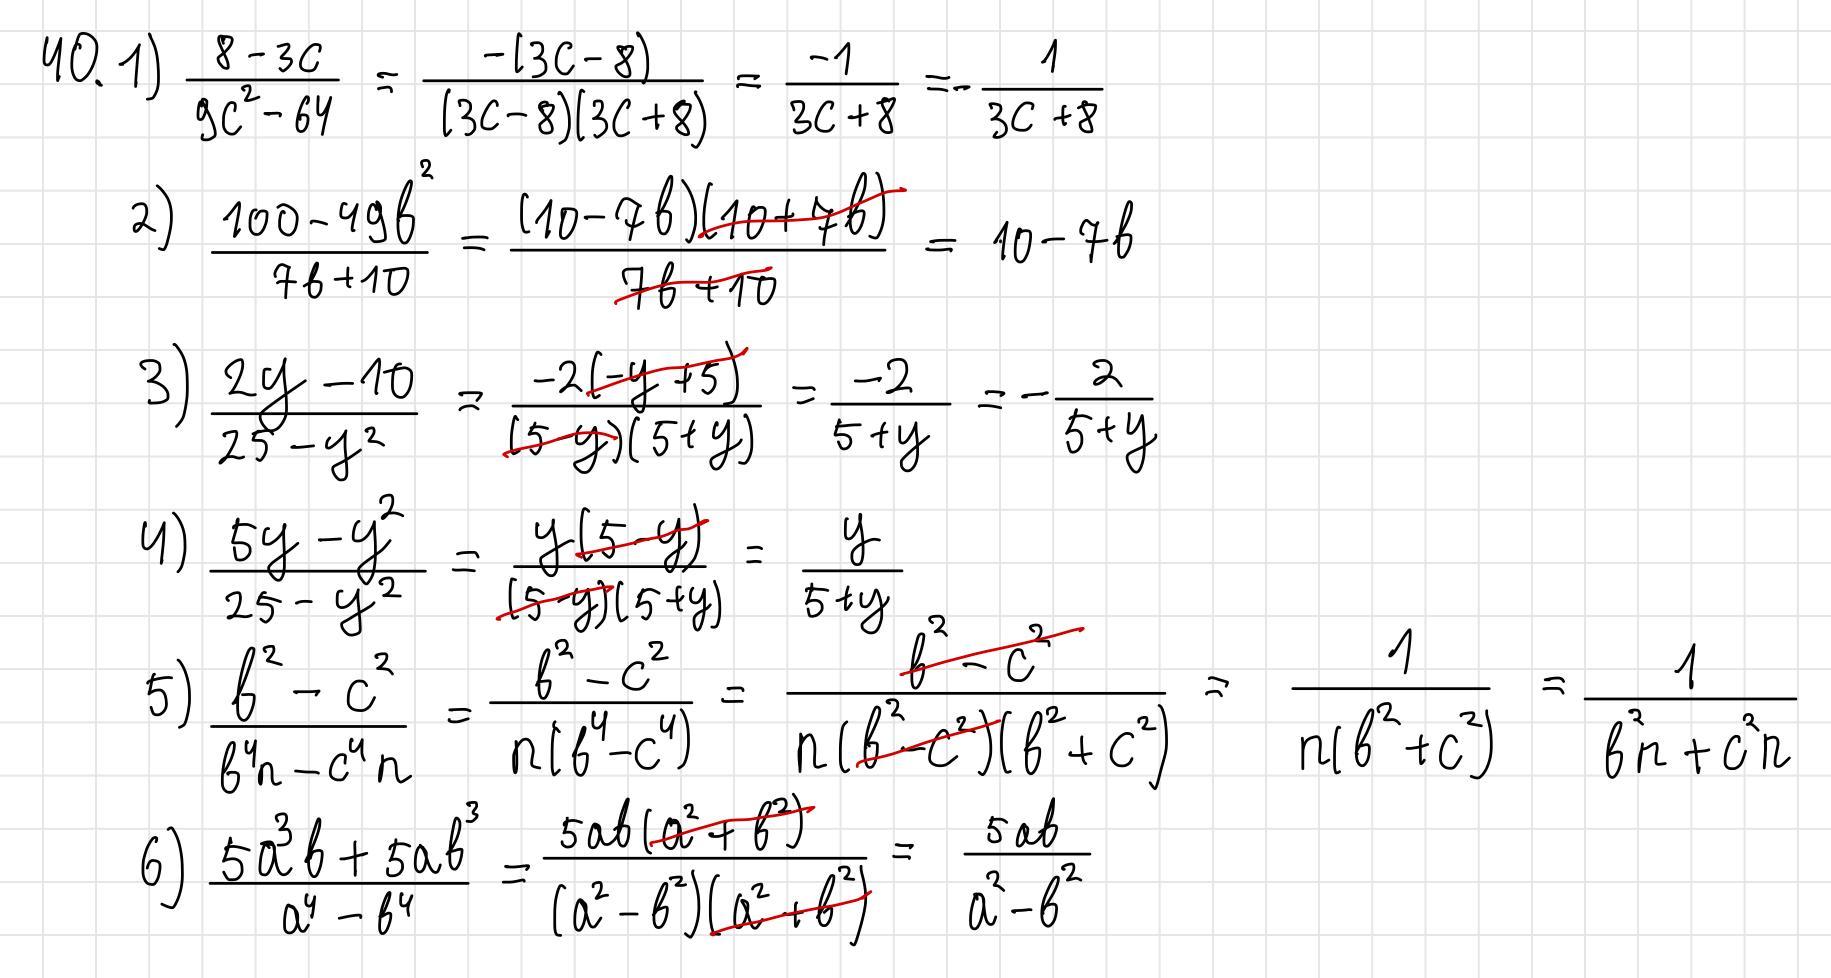 40. 1) (8-3c)/(9c²-64) = (-(3c-8))/((3c-8)(3c+8)) = (-1)/(3c+8) = - 1/(3c+8)
2) (100-49b²)/(7b+10) = ((10-7b)(10+7b))/(7b+10) = 10-7b
3) (2y-10)/(25-y²) = (-2(-y+5))/((5-y)(5+y)) = (-2)/(5+y) = - 2/(5+y)
4) (5y-y²)/(25-y²) = (y(5-y))/((5-y)(5+y)) = y/(5+y)
5) (b²-c²)/(b⁴n-c⁴n) = (b²-c²)/(n(b⁴-c⁴)) = (b²-c²)/(n(b²-c²)(b²+c²)) = 1/(n(b²+c²)) = 1/(b²n+c²n)
6) (5a³b+5ab³)/(a⁴-b⁴) = (5ab(a²+b²))/((a²-b²)(a²+b²)) = 5ab/(a²-b²)